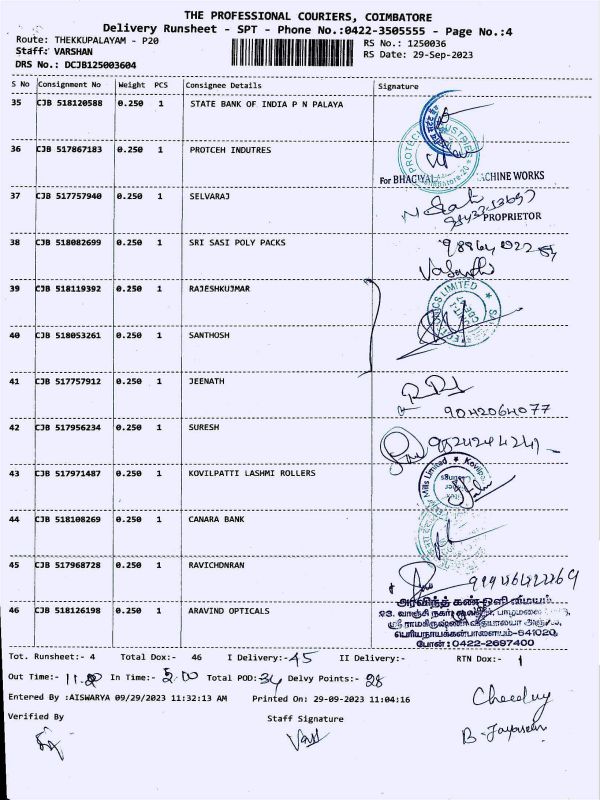 THE PROFESSIONAL COURIERS, COIMBATORE
Delivery Runsheet - SPT - Phone No.:0422-3505555 - Page No.:4
Route: THEKKUPALAYAM - P20 RS No.: 1250036
Staff: VARSHAN RS Date: 29-Sep-2023
DRS No.: DCJB125003604
S No Consignment No Weight PCS Consignee Details Signature
35 CJB 518120588 0.250 1 STATE BANK OF INDIA P N PALAYA
36 CJB 517867183 0.250 1 PROTCEH INDUTRES
For BHAGWAL MACHINE WORKS
37 CJB 517757940 0.250 1 SELVARAJ
PROPRIETOR
38 CJB 518082699 0.250 1 SRI SASI POLY PACKS
Vasanthi
39 CJB 518119392 0.250 1 RAJESHKUJMAR
40 CJB 518053261 0.250 1 SANTHOSH
41 CJB 517757912 0.250 1 JEENATH
9042064077
42 CJB 517956234 0.250 1 SURESH
43 CJB 517971487 0.250 1 KOVILPATTI LASHMI ROLLERS
44 CJB 518108269 0.250 1 CANARA BANK
45 CJB 517968728 0.250 1 RAVICHDNRAN
46 CJB 518126198 0.250 1 ARAVIND OPTICALS
அரவிந்த் கண் ஒளி மையம்
பெரியநாயக்கன்பாளையம்-641020,
போன்:0422-2697400
Tot. Runsheet:- 4 Total Dox:- 46 I Delivery:- 45 II Delivery:- RTN Dox:- 1
Out Time:- 11.20 In Time:- 5.00 Total POD: 34 Delvy Points:- 28
Entered By :AISWARYA 09/29/2023 11:32:13 AM Printed On: 29-09-2023 11:04:16
Verified By Staff Signature
B. Jayaseelan